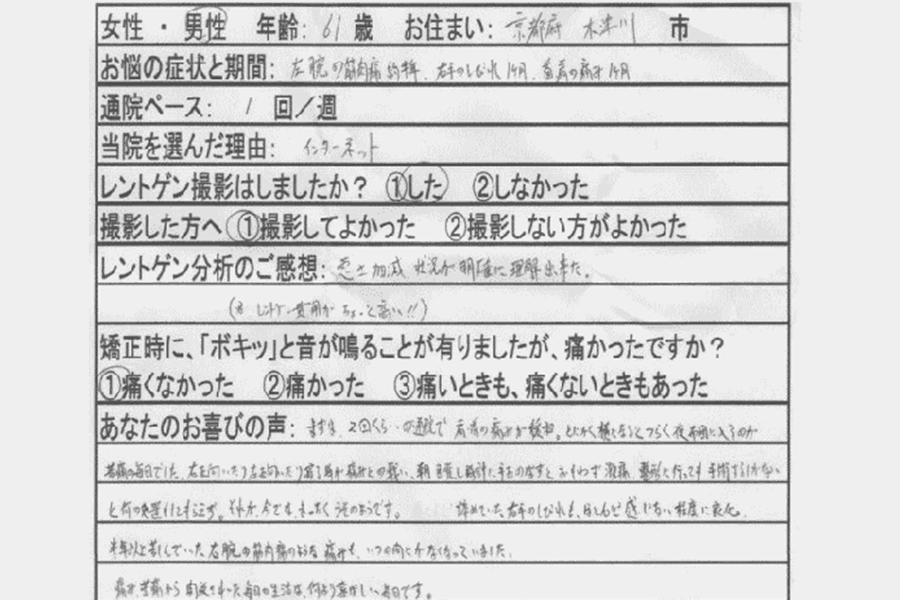 女性 ・ 男性 年齢: 61 歳 お住まい: 京都府 木津川 市
お悩の症状と期間: 左腕の筋肉痛 約半年、右手のしびれ 1ヶ月、首肩の痛み 1ヶ月
通院ペース: 1 回／週
当院を選んだ理由: インターネット
レントゲン撮影はしましたか? ①した ②しなかった
撮影した方へ ①撮影してよかった ②撮影しない方がよかった
レントゲン分析のご感想: 悪さ加減 状況が明確に理解出来た。
(レントゲン費用が ちょっと高い!!)
矯正時に、「ボキッ」と音が鳴ることが有りましたが、痛かったですか?
①痛くなかった ②痛かった ③痛いときも、痛くないときもあった
あなたのお喜びの声: まずは、2回くらいの通院で 首肩の痛みが緩和。とにかく横になるとつらく夜布団に入るのが
苦痛の毎日でした。右を向いたり左を向いたり 痛みとの戦い、朝 目覚し時計に手をのばすと
それが、今では、まったく うそのようです。 諦めていた右手のしびれも、ほとんど感じない程度に良化。
半年以上苦しんでいた、左腕の筋肉痛のような痛みも、いつの間にかなくなっていました。
痛み、苦痛から 開放された毎日の生活は、何より喜ばしい毎日です。